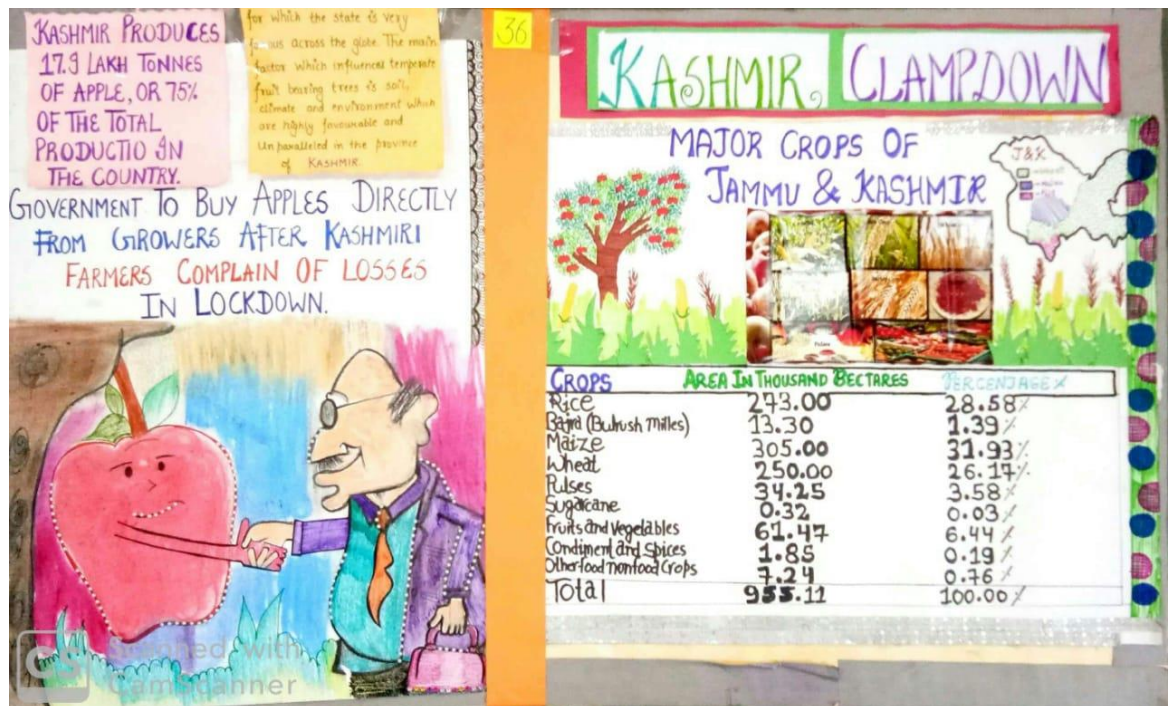 KASHMIR PRODUCES
17.9 LAKH TONNES
OF APPLE, OR 75%
OF THE TOTAL
PRODUCTIO IN
THE COUNTRY.
for which the state is very
across the globe. The main
factor which influences temperate
fruit bearing trees is soil,
climate and environment which
are highly favourable and
Unparalleled in the province
of KASHMIR.
GOVERNMENT TO BUY APPLES DIRECTLY
FROM GROWERS AFTER KASHMIRI
FARMERS COMPLAIN OF LOSSES
IN LOCKDOWN.
CS Scanned with
CamScanner
36
KASHMIR CLAMPDOWN
MAJOR CROPS OF
JAMMU & KASHMIR
J&K
Pulses
CROPS AREA IN THOUSAND BECTARES PERCENTAGE%
Rice 273.00 28.58%
Bajra (Bulrush Milles) 13.30 1.39%
Maize 305.00 31.93%
Wheat 250.00 26.17%
Pulses 34.25 3.58%
Sugarcane 0.32 0.03%
Fruits and Vegetables 61.47 6.44%
Condiment and Spices 1.85 0.19%
Other food nonfood Crops 7.24 0.76%
Total 955.11 100.00%